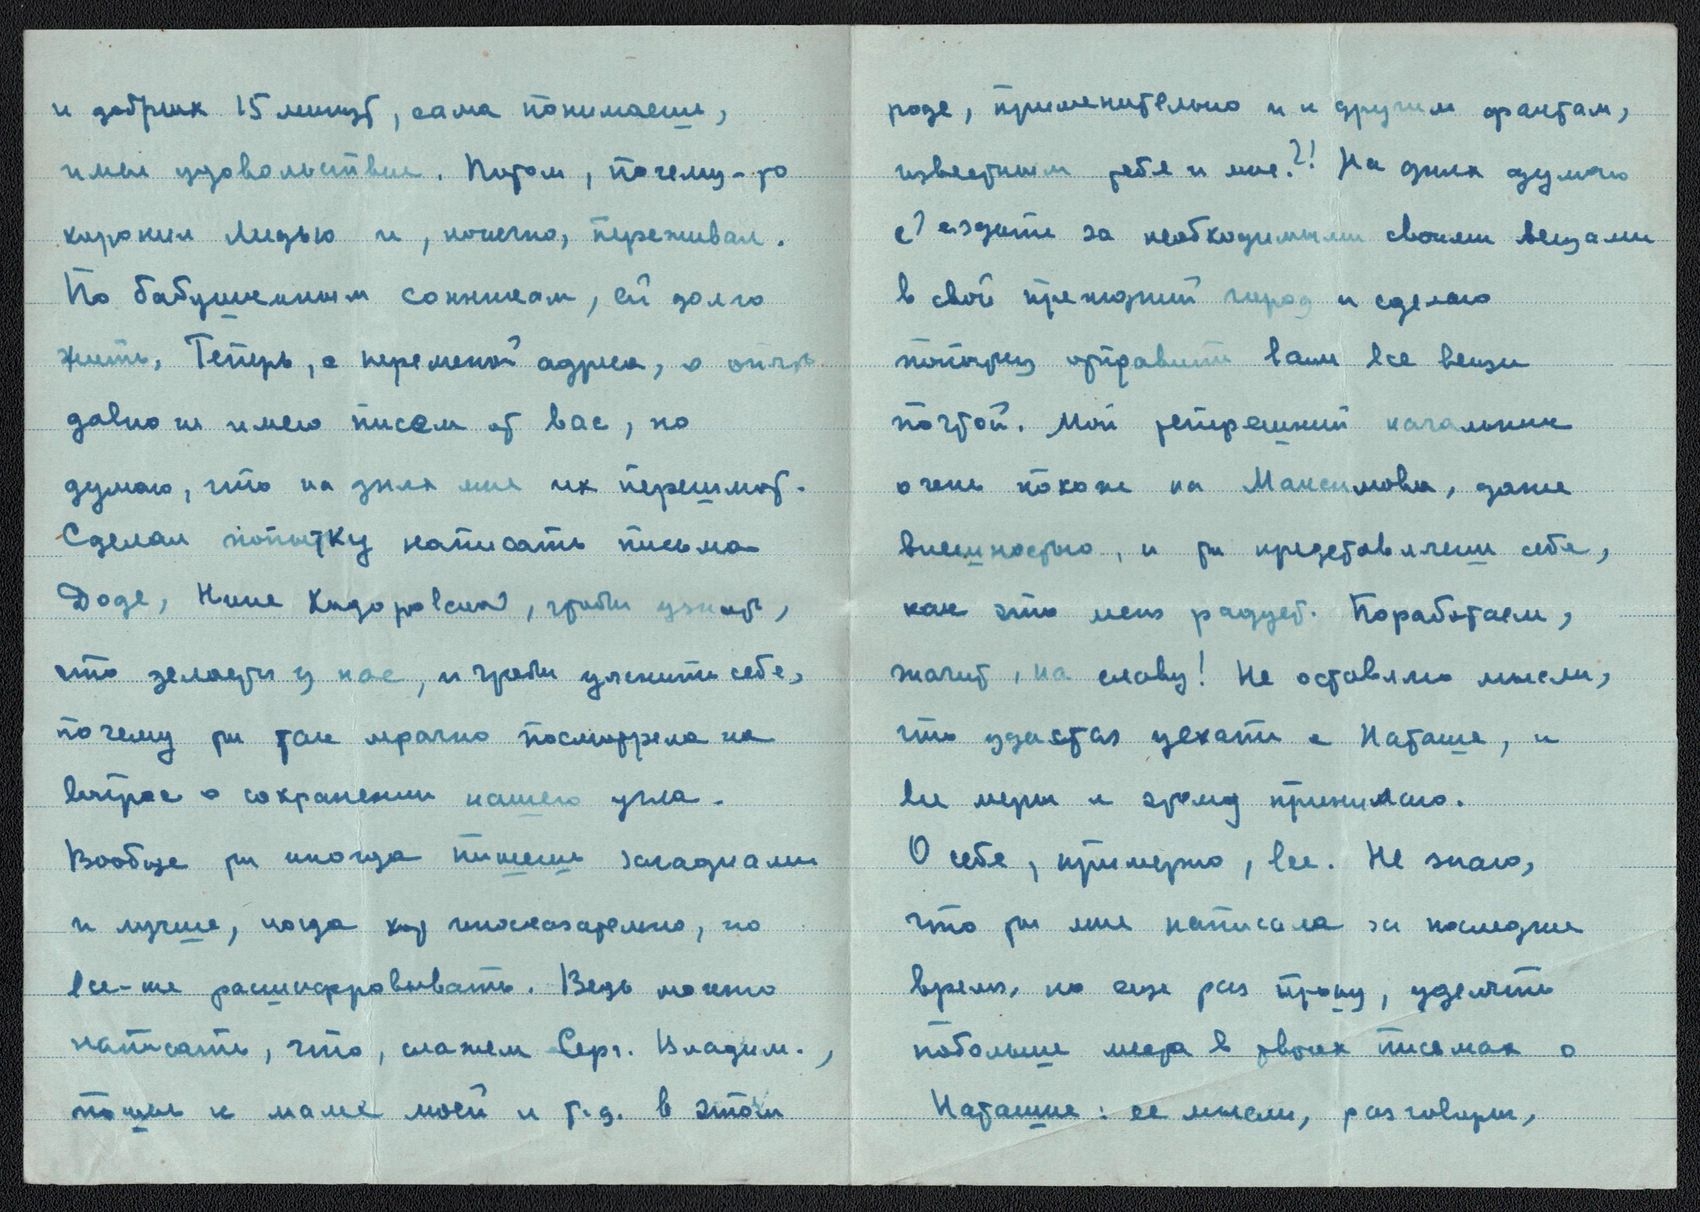 и добрых 15 минут, сама понимаешь,
имел удовольствие. Потом, почему-то
хоронил Лидью и, конечно, переживал.
По бабушкиным сонникам, ей долго
жить. Теперь, с переменой адреса, я опять
давно не имею писем от вас, но
думаю, что на днях мне их перешлют.
Сделал попытку написать письма
Доде, Нине, чтобы узнать,
что делается у нас, и чтобы уяснить себе,
почему ты так мрачно посмотрела на
вопрос о сохранении нашего угла.
Вообще ты иногда пишешь загадками
и лучше, когда хоть иносказательно, но
все-же расшифровывать. Ведь можно
написать, что, скажем Серг. Владим.,
пошел к маме моей и т.д. в этом
роде, применительно и к другим фактам,
известным тебе и мне?! На днях думаю
съездить за необходимыми своими вещами
в свой прежний город и сделаю
попытку отправить вам все вещи
почтой. Мой теперешний начальник
очень похож на Максимова, даже
внешностью, и ты представляешь себе,
как это меня радует. Поработаем,
значит, на славу! Не оставляю мысли,
что удастся уехать к Наташе, и
все меры к этому принимаю.
О себе, примерно, все. Не знаю,
что ты мне написала за последнее
время, но еще раз прошу, уделять
побольше места в твоих письмах о
Наташке: ее мысли, разговоры,